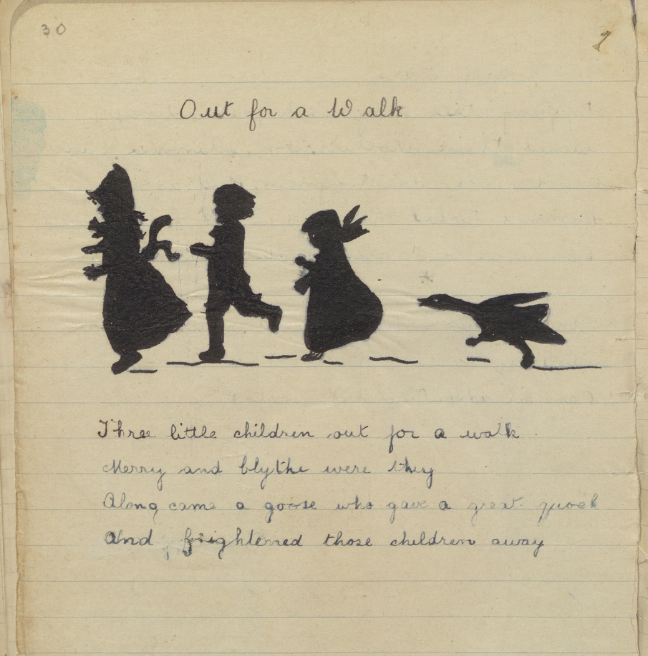 30
Out for a Walk
Three little children out for a walk
Merry and blythe were they
Along came a goose who gave a great
And frightened those children away